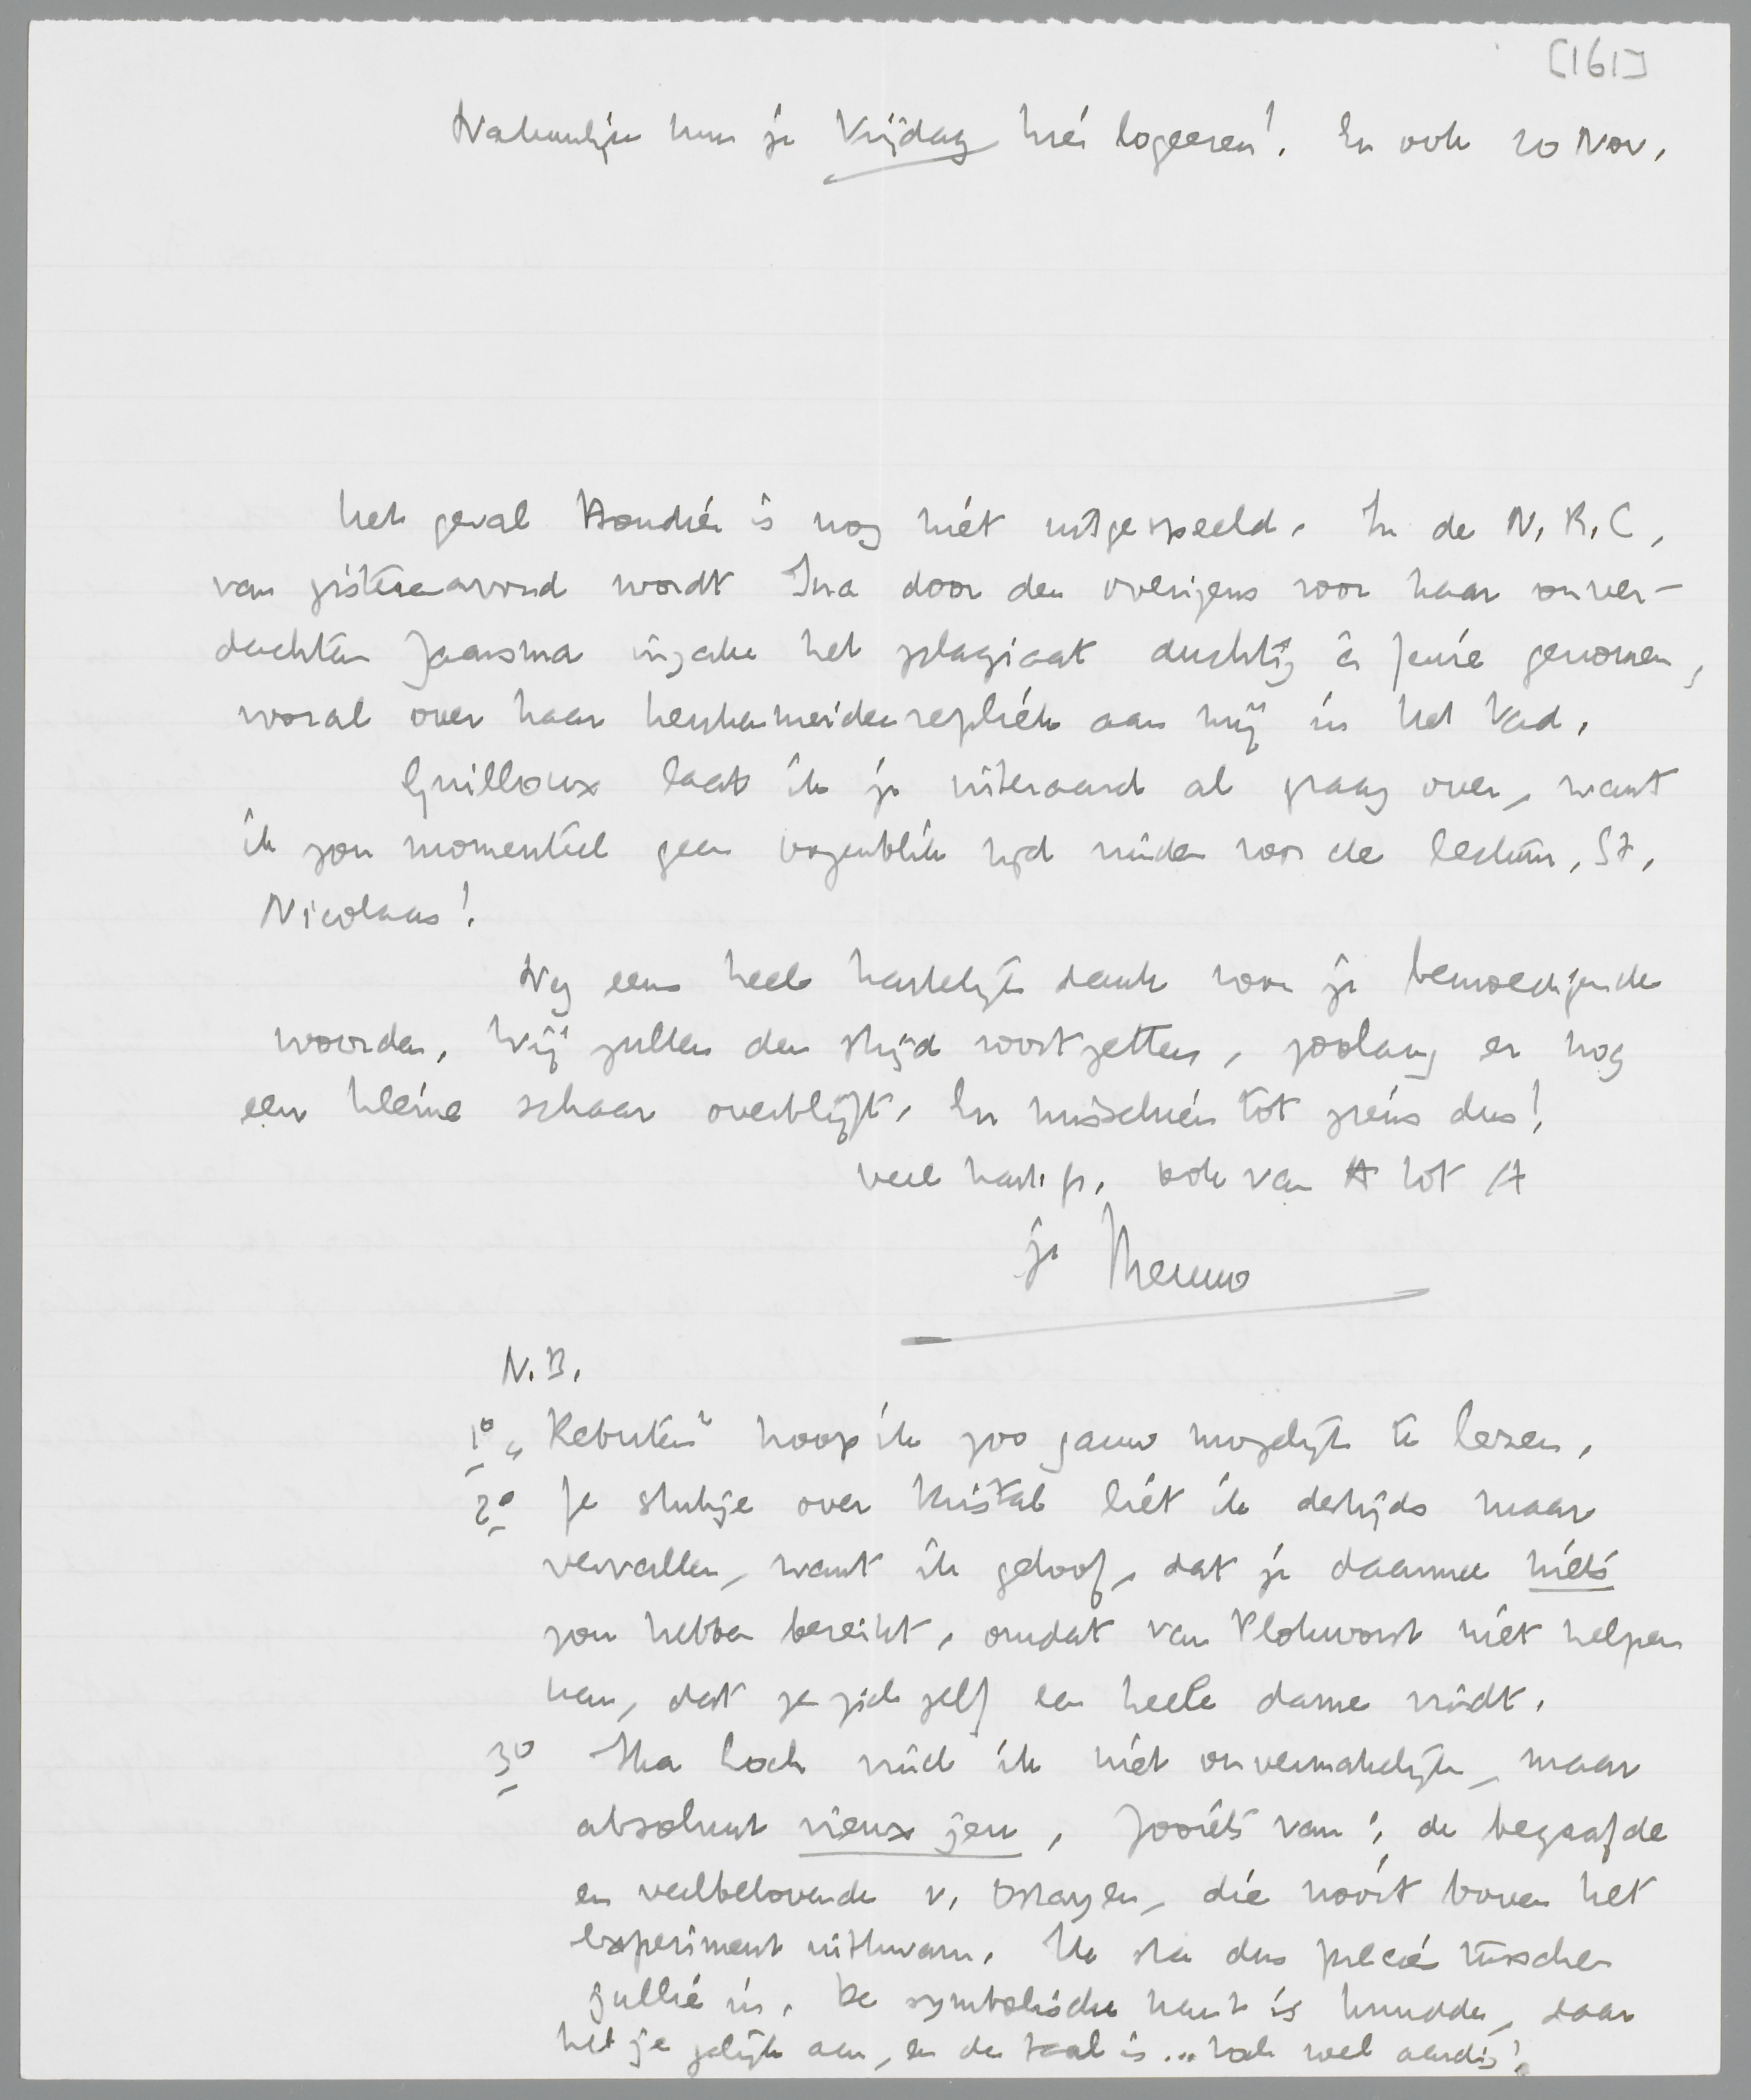 [161]
Natuurlijk kun je Vrijdag hier logeeren! En ook 20 Nov.
Het geval Boudier is nog niet uitgespeeld. In de N.R.C.
van gisterenavond wordt Ina door den overigens voor haar onver-
dachten Jaarsma inzake het plagiaat duchtig à faire genomen,
vooral over haar keukenmeidenrepliek aan mij in het Vad.
Guilloux laat ik je uiteraard al graag over, want
ik zou momenteel geen oogenblik tijd vinden voor de lectuur. St.
Nicolaas!
Nog eens heel hartelijk dank voor je bemoedigende
woorden. Wij zullen den strijd voortzetten, zoolang er nog
een kleine schaar overblijft. En misschien tot ziens dus!
veel hart. gr. ook van A tot A
je Menno
N.B.
1º „Rebuten" hoop ik zoo gauw mogelijk te lezen.
2º Je stukje over Kristal liet ik destijds maar
vervallen, want ik geloof, dat je daarmee niets
zou hebben bereikt, omdat van Plokworst niet helpen
kan, dat ze zich zelf een heele dame vindt.
3º Ika Loch vind ik niet onvermakelijk, maar
absoluut vieux jeu, zooiets van: de begaafde
en veelbelovende v. Ostayen, die nooit boven het
experiment uitkwam. Ik sta dus precies tusschen
jullie in. De symbolische kant is knudde, daar
heb je gelijk aan, en de taal is... toch wel aardig!